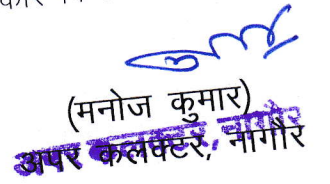 (मनोज कुमार)
अपर कलक्टर, नागौर